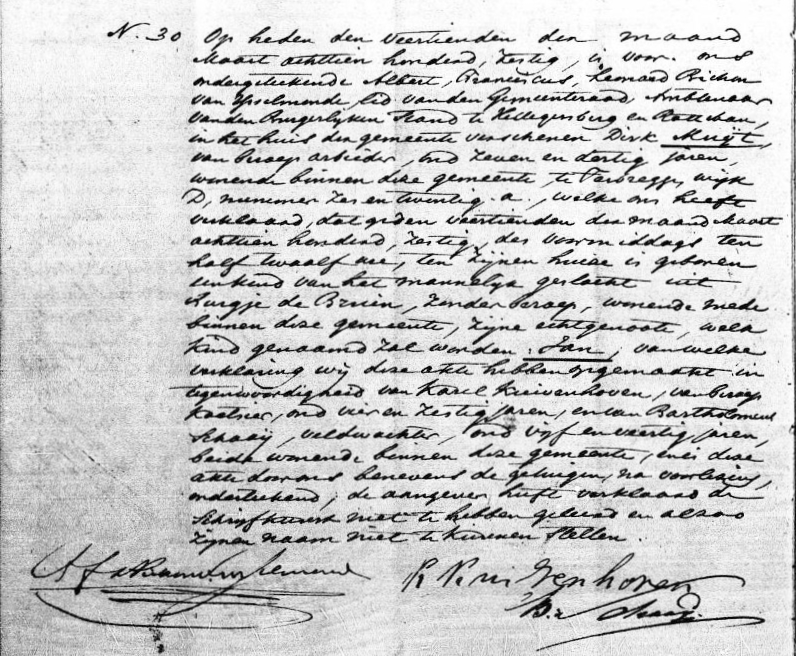 N. 30 Op heden den veertienden der maand
Maart achttien honderd, zestig, is voor ons
ondergeteekende Albert, Franciscus, Leonard
van IJsselmonde, lid van den Gemeenteraad, Ambtenaar
van den Burgerlyken Stand te Hillegersberg en Rotteban,
in het huis der gemeente verschenen Dirk Muijt,
van beroep arbeider, oud zeven en dertig jaren,
wonende binnen deze gemeente, te Terbregge, wijk
D, nummer zes en twintig a., welke ons heeft
verklaard, dat op den veertienden der maand Maart
achttien honderd, zestig, des voormiddags ten
half twaalf ure, ten zijnen huize is geboren
een kind van het mannelijk geslacht uit
Burgje de Bruin, zonder beroep, wonende mede
binnen deze gemeente, zijne echtgenoote, welk
kind genaamd zal worden Jan, van welke
verklaring wij deze akte hebben opgemaakt in
tegenwoordigheid van Karel Kuivenhoven, van beroep
, oud vier en zestig jaren, en van Bartholomeus
Schaaij, veldwachter, oud vijf en veertig jaren,
beide wonende binnen deze gemeente, en is deze
akte door ons benevens de getuigen, na voorlezing,
onderteekend; de aangever heeft verklaard de
Schrijfkunst niet te hebben geleerd en alzoo
zijnen naam niet te kunnen stellen.
K Kuivenhoven
B. Schaaij